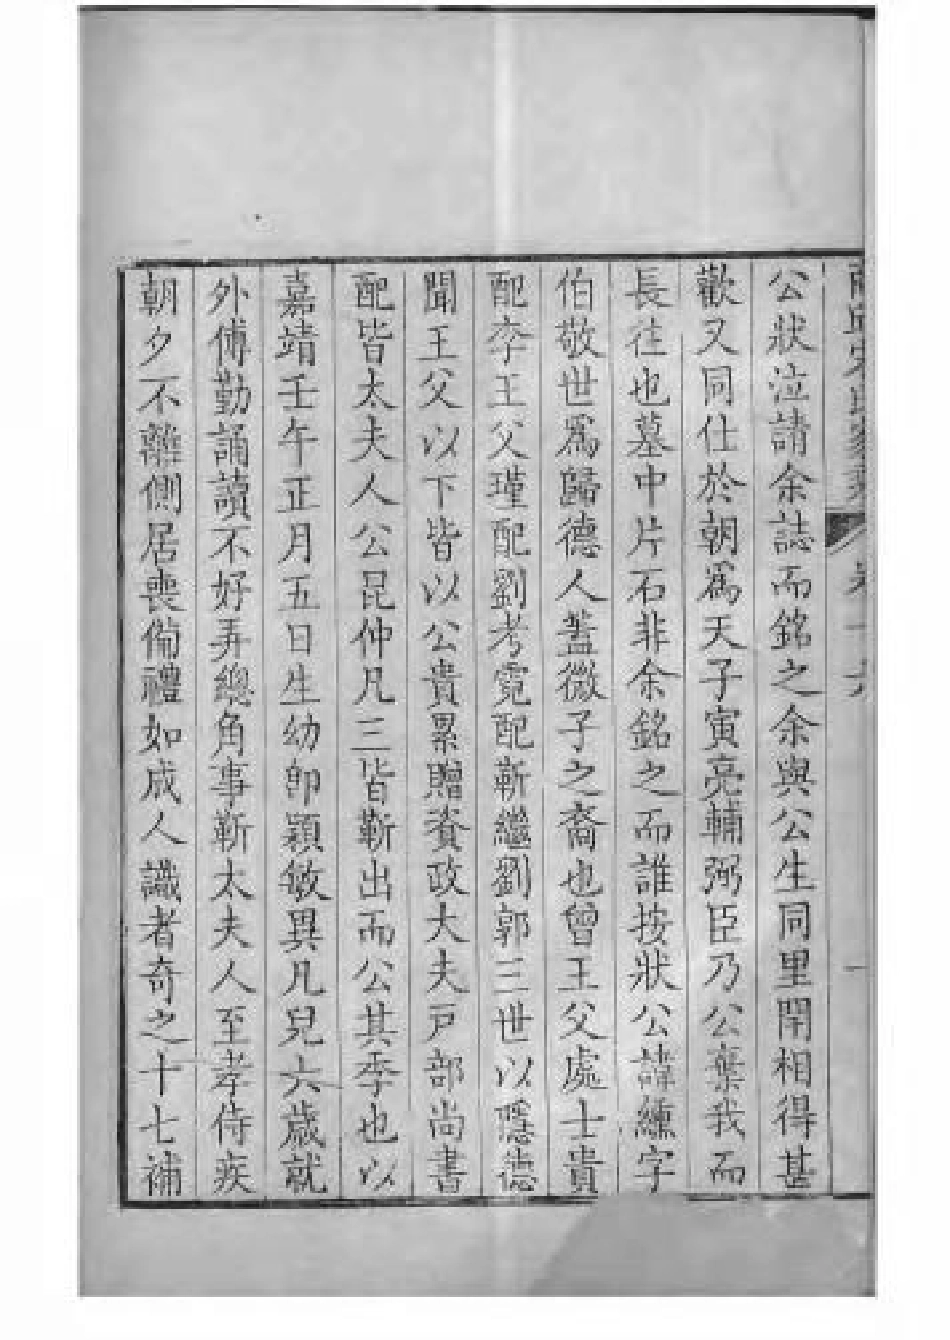 公狀泣請余誌而銘之余與公生同里閈相得甚
歡又同仕於朝爲天子寅亮輔弼臣乃公棄我而
長往也墓中片石非余銘之而誰按狀公諱纁字
伯敬世爲歸德人蓋微子之裔也曾王父處士貴
配李王父瑾配劉考霓配靳繼劉郭三世以隱德
聞王父以下皆以公貴累贈資政大夫戸部尚書
配皆太夫人公昆仲凡三皆靳出而公其季也以
嘉靖壬午正月五日生幼卽穎敏異凡兒六歲就
外傅勤誦讀不好弄總角事靳太夫人至孝侍疾
朝夕不離側居喪備禮如成人識者奇之十七補